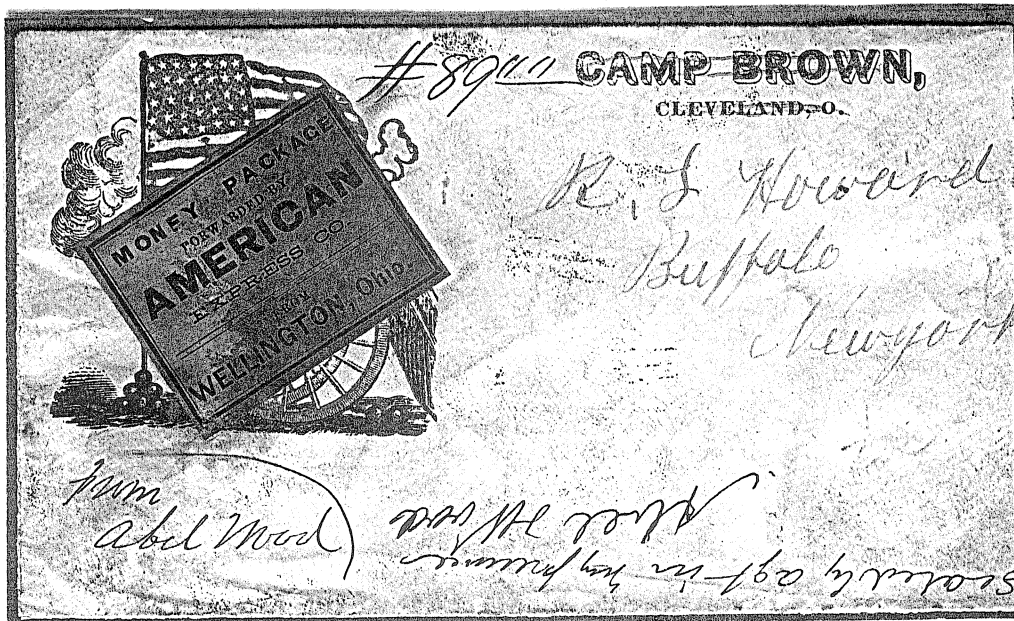 #89
CAMP BROWN,
CLEVELAND, O.
MONEY PACKAGE
FORWARDED BY
AMERICAN
EXPRESS CO
FROM
WELLINGTON, Ohio.
R. L Howard
Buffalo
Newyork
from
Abel Wood
Sealed by agt in my presence
Abel Wood